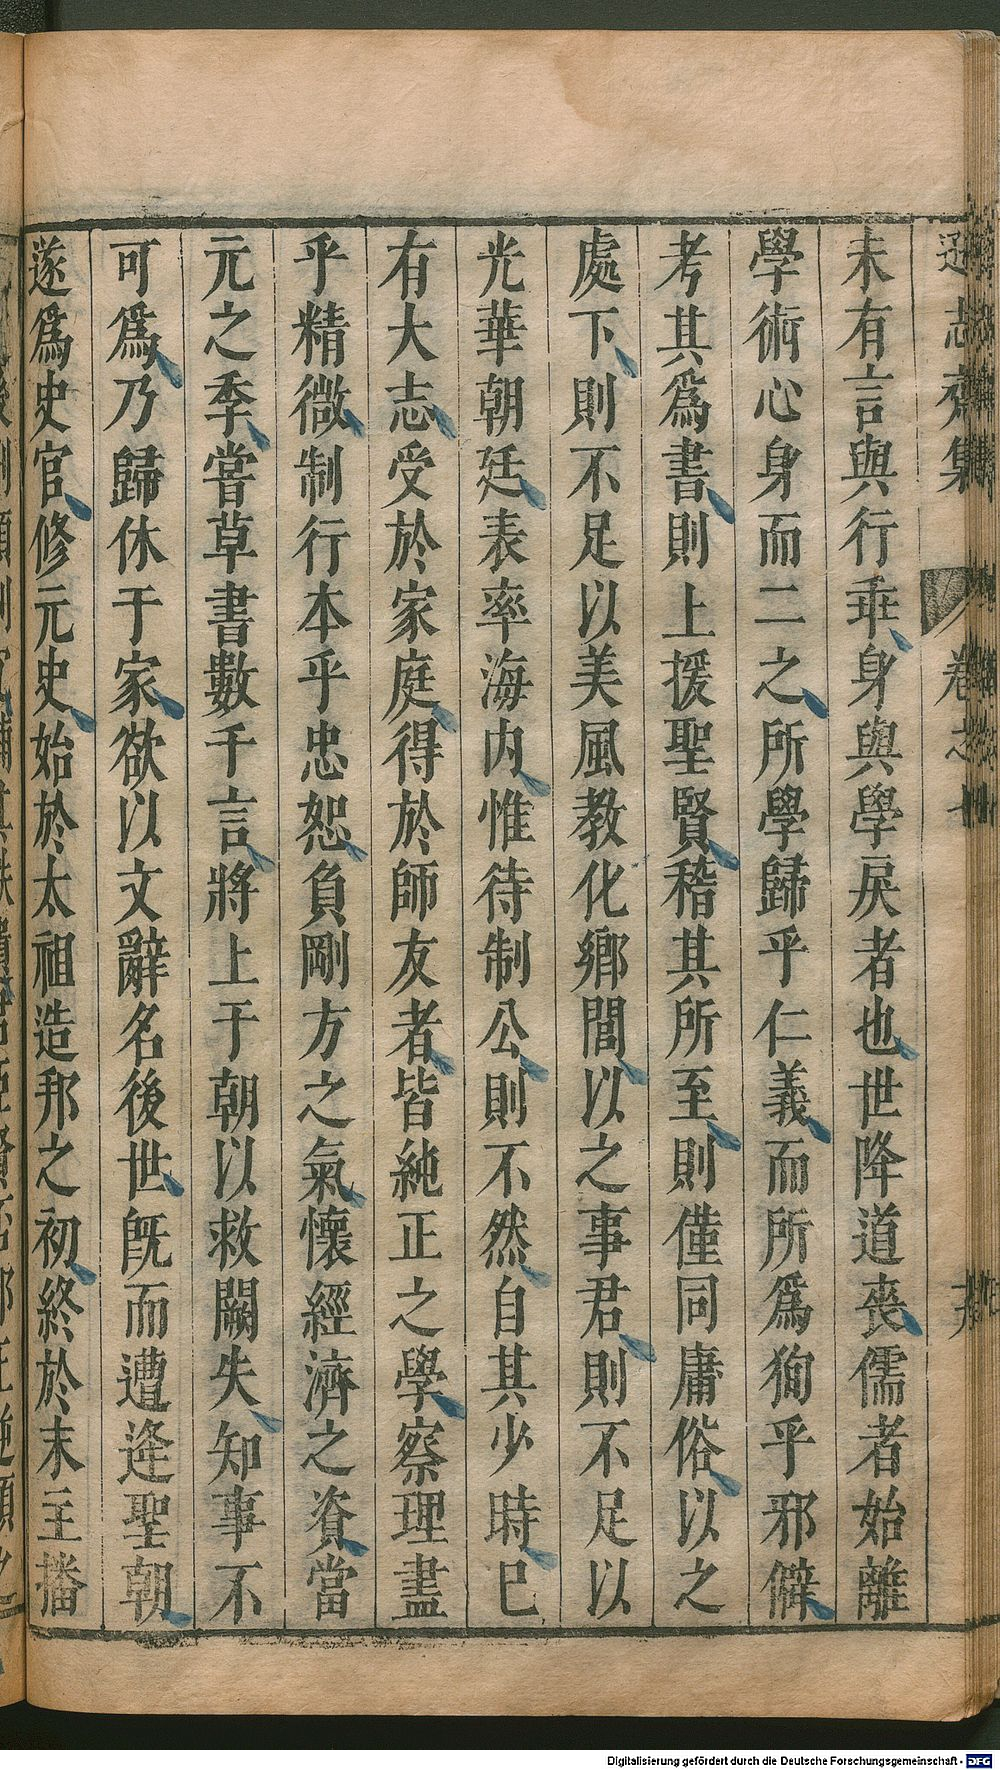 遜志齋集 卷之
未有言與行乖身與學戾者也世降道喪儒者始離
學術心身而二之所學歸乎仁義而所爲狥乎邪僻
考其爲書則上援聖賢稽其所至則僅同庸俗以之
處下則不足以美風教化鄉閭以之事君則不足以
光華朝廷表率海内惟待制公則不然自其少時已
有大志受於家庭得於師友者皆純正之學察理盡
乎精微制行本乎忠恕負剛方之氣懷經濟之資當
元之季嘗草書數千言將上于朝以救闕失知事不
可爲乃歸休于家欲以文辭名後世旣而遭逢聖朝
遂爲史官修元史始於太祖造邦之初終於末主播
Digitalisierung gefördert durch die Deutsche Forschungsgemeinschaft - DFG